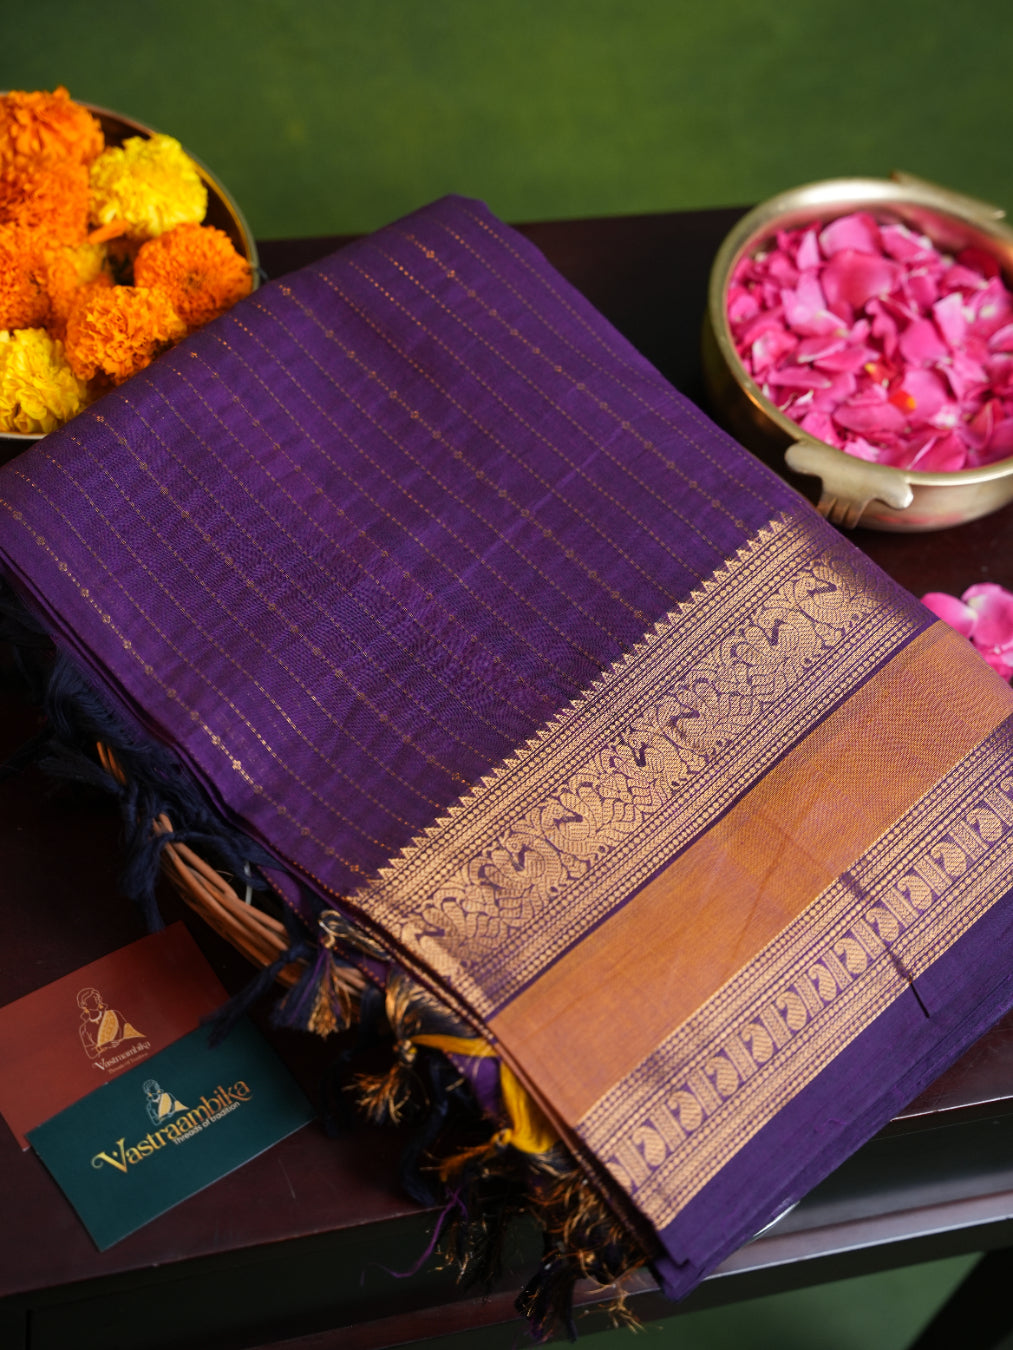 Vastraambika
Threads of tradition
Vastraambika
Threads of tradition